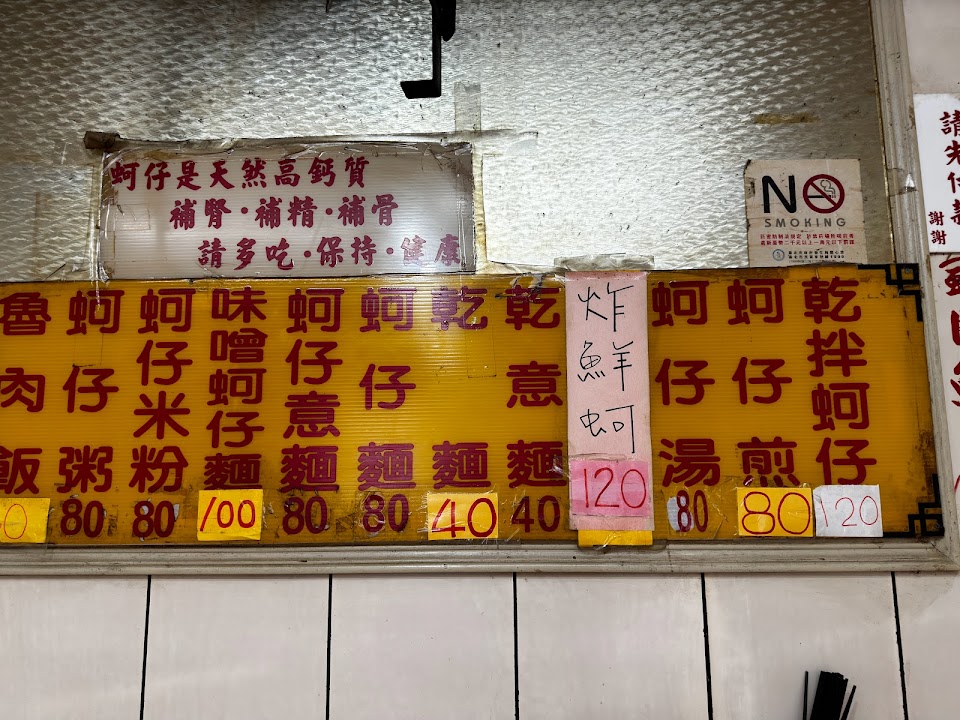 蚵仔是天然高鈣質
補腎·補精·補骨
請多吃·保持·健康
NO
SMOKING
謝謝
乾拌蚵仔
120
蚵仔煎
80
蚵仔湯
80
炸鮮蚵
120
乾意麵
40
乾麵
40
蚵仔麵
80
蚵仔意麵
80
味噌蚵仔麵
100
蚵仔米粉
80
蚵仔粥
80
魯肉飯